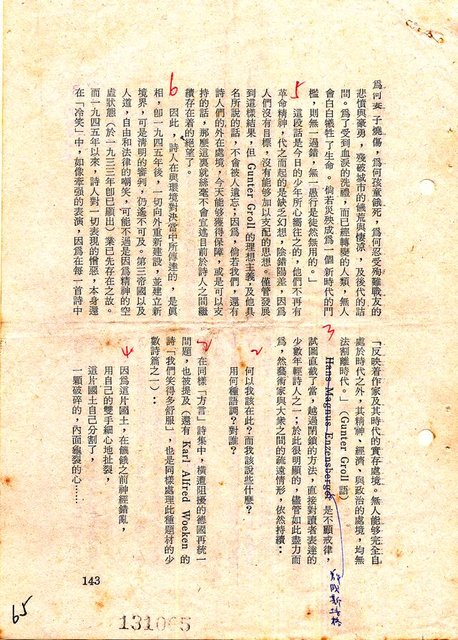 為何妻子燒傷,為何孩童餓死,為何忍受殉難戰友的
悲憤與豪勇,殘破城市的饑荒與悽涼,及後代的詰
問。為了受到血淚的洗禮,而已經轉變的人類,無人
會白白犧牲了生命。倘若災殃成為一個新時代的門
檻,則無一過錯,無一愚行是徒然無用的。」
5
這段話是今日的少年所心嚮往之的,他們不再有
革命精神,代之而起的是缺乏幻想,陰錯陽差,因為
人們沒有目標,沒有能够加以支配的思想。儘管發展
到這樣結果,但 Gunter Groll 的理想主義,及他具
名所說的話,不會被人遺忘:因為,倘若我們,還有
詩人們的外在處境,今天能够獲得保障,或是可以支
持的話,那麼這裏就絲毫不會宣述目前於詩人之間繼
續存在着的絕望了。
6
因此,詩人在與環境對決當中所傳達的,是眞
相,卽一九四五年後,一切向外重新建設,並建立新
境界,可是清明的審判,仍遙不可及。第三帝國以及
人道,自由和法律的嘲笑,可能不過是因為精神的空
虛狀態(於一九三三年卽已顯出)業已先存在之故。
而一九四五年以來,詩人對一切表現的憎惡,本身還
在「冷笑」中,如像牽强的表演,因為在每一首詩中
「反映着作家及其時代的實存處境。無人能够完全自
處於時代之外,其精神、經濟、與政治的處境,均無
法割離時代。」(Gunter Groll 語)
3
Hans Magnus Enzensberger 是不顧戒律,
試圖直截了當,越過閉鎖的方法,直接對讀者表達的
少數年輕詩人之一:於此很明顯的,儘管如此盡力而
為,然藝術家與大衆之間的疏遠情形,依然持續:
2
何以我該在此?而我該說些什麼?
用何種語調?對誰?
在同樣「方言」詩集中,橫遭阻擾的德國再統一
問題,也被提及(還有 Karl Alfred Woeken 的
詩「我們笑得多舒服」,也是同樣處理此種題材的少
數詩篇之一):
4
因為這片國土,在饑餓之前神經錯亂,
用自己的雙手細心地扯裂,
這片國土自己分割了,
一顆破碎的,內面龜裂的心……
143
65